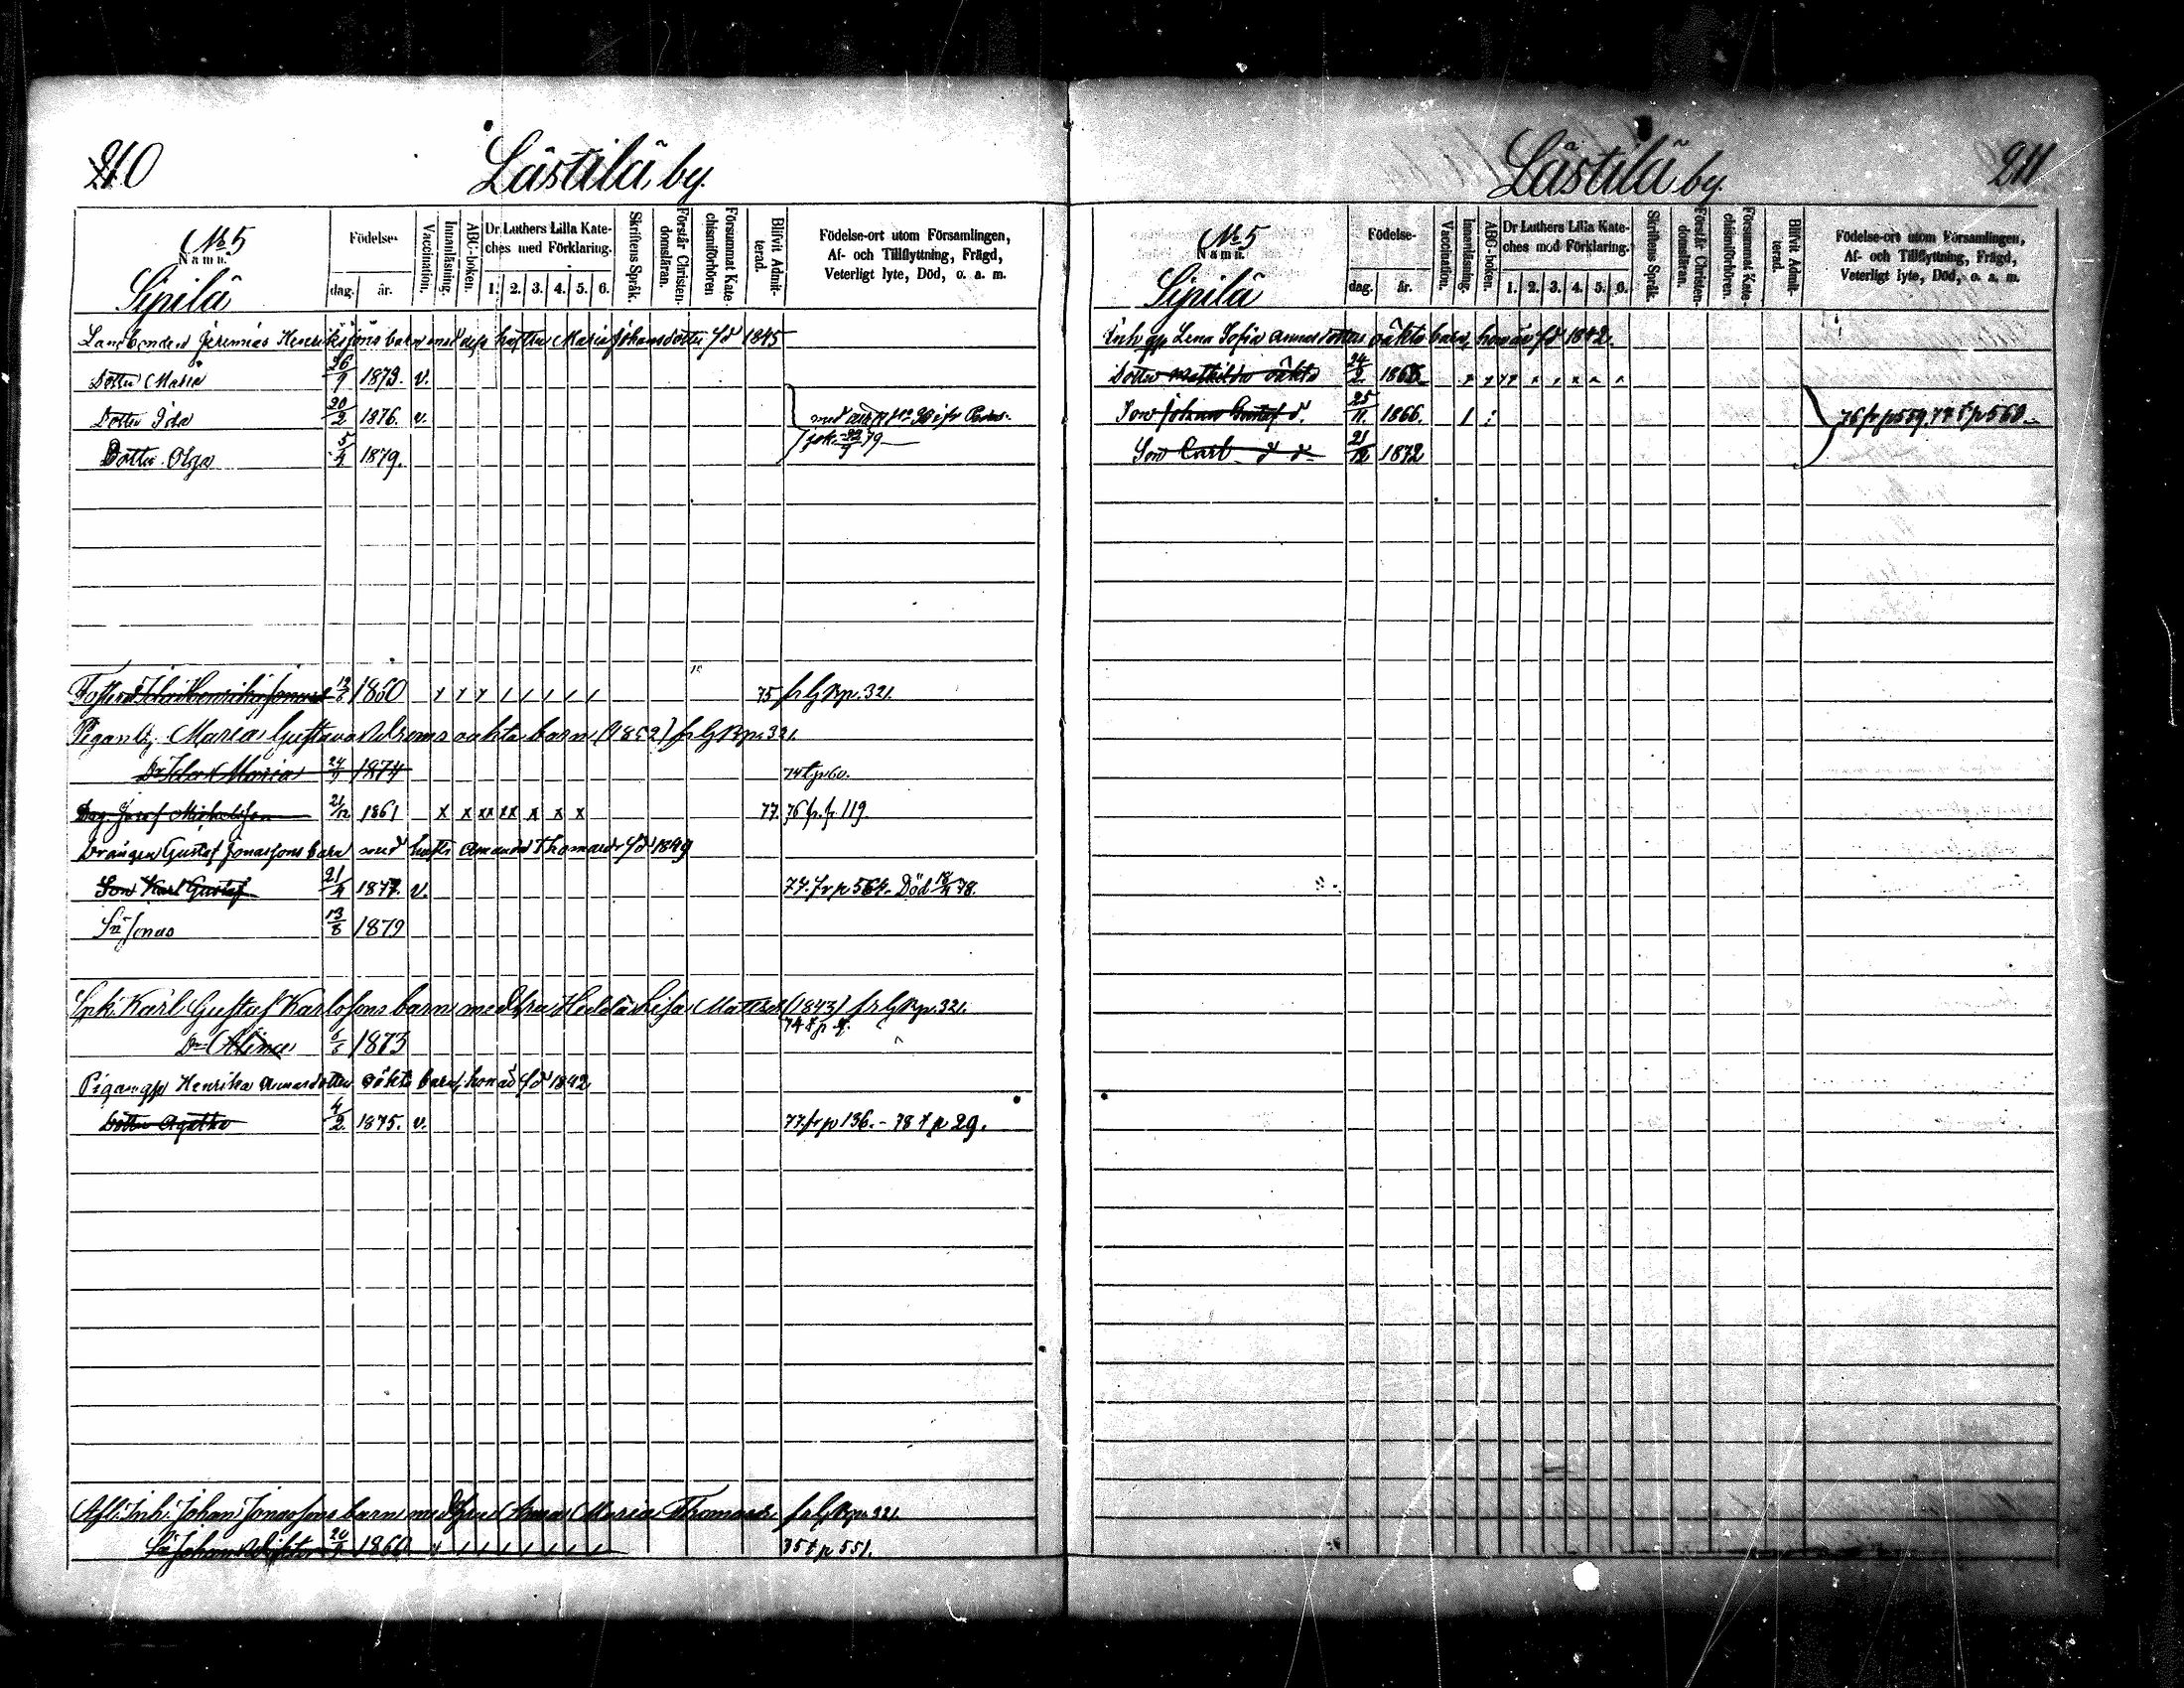 210
Lästilä by.
No 5
Namn.
Sipilä
Födelse-
dag.
år.
Vaccination.
Innanläsning.
ABC-boken.
Dr. Luthers Lilla Kate-
ches med Förklaring.
1. 2. 3. 4. 5. 6.
Skriftens Språk.
Förstår Christen-
domsläran.
Försummat Kate-
chismiförhören
Blifvit Admit-
terad.
Födelse-ort utom Församlingen,
Af- och Tillflyttning, Frägd,
Veterligt lyte, Död, o. a. m.
Landbonden Jeremias Henrikssons barn med dess hustru Maria Johansdotter fd 1845
Dotter Maria 26/9 1873. v.
Dotter Ida 20/2 1876. v.
Dotter Olga 5/4 1879.
1860 75 fr G Bp. 321.
Pigan Maria Gustava oäkta barn (1852) fr G Bp. 321.
Dr Ida Maria 24/1 1874 74 t p 60.
Josef Michelsson 21/12 1861 x x xx xx x x x 77. 76 fr. p. 119
Drängen Gustaf Jonassons barn med hustr Amanda Thomasdr fd 1849
Son Karl Gustaf 21/4 1877. v. 77. fr p 564. Död 18/4 78.
Sn Jonas 13/8 1879
Karl Gustaf Karlssons barn med hru Hedda Lisa Mattsdr (1843) fr G Bp. 321.
Dr Alina 6/6 1873
Pigan Henrika oäkta barn, hon är fd 1842
Dotter Agatha 4/2 1875. v. 77. fr p 136. - 78 t p 29.
Afl. Inh. Johan Jonassons barn med hru Anna Maria Thomasdr fr G Bp. 321.
Sn Johan Wiktor 1860 75 t p 551.
Lästilä by.
211
No 5
Namn.
Sipilä
Födelse-
dag.
år.
Vaccination.
Innanläsning.
ABC-boken.
Dr Luthers Lilla Kate-
ches med Förklaring.
1. 2. 3. 4. 5. 6.
Skriftens Språk.
Förstår Christen-
domsläran.
Försummat Kate-
chismiförhören.
Blifvit Admit-
terad.
Födelse-ort utom Församlingen,
Af- och Tillflyttning, Frägd,
Veterligt lyte, Död, o. a. m.
Inh Lena Sofia oäkta barn, hon är fd 1842.
Dotter Mathilda oäkta 24/2
Son Johan Gustaf d. 25/11. 1866. 76 fr p 559. 77 t p 560.
Son Carl d d 21/12 1872